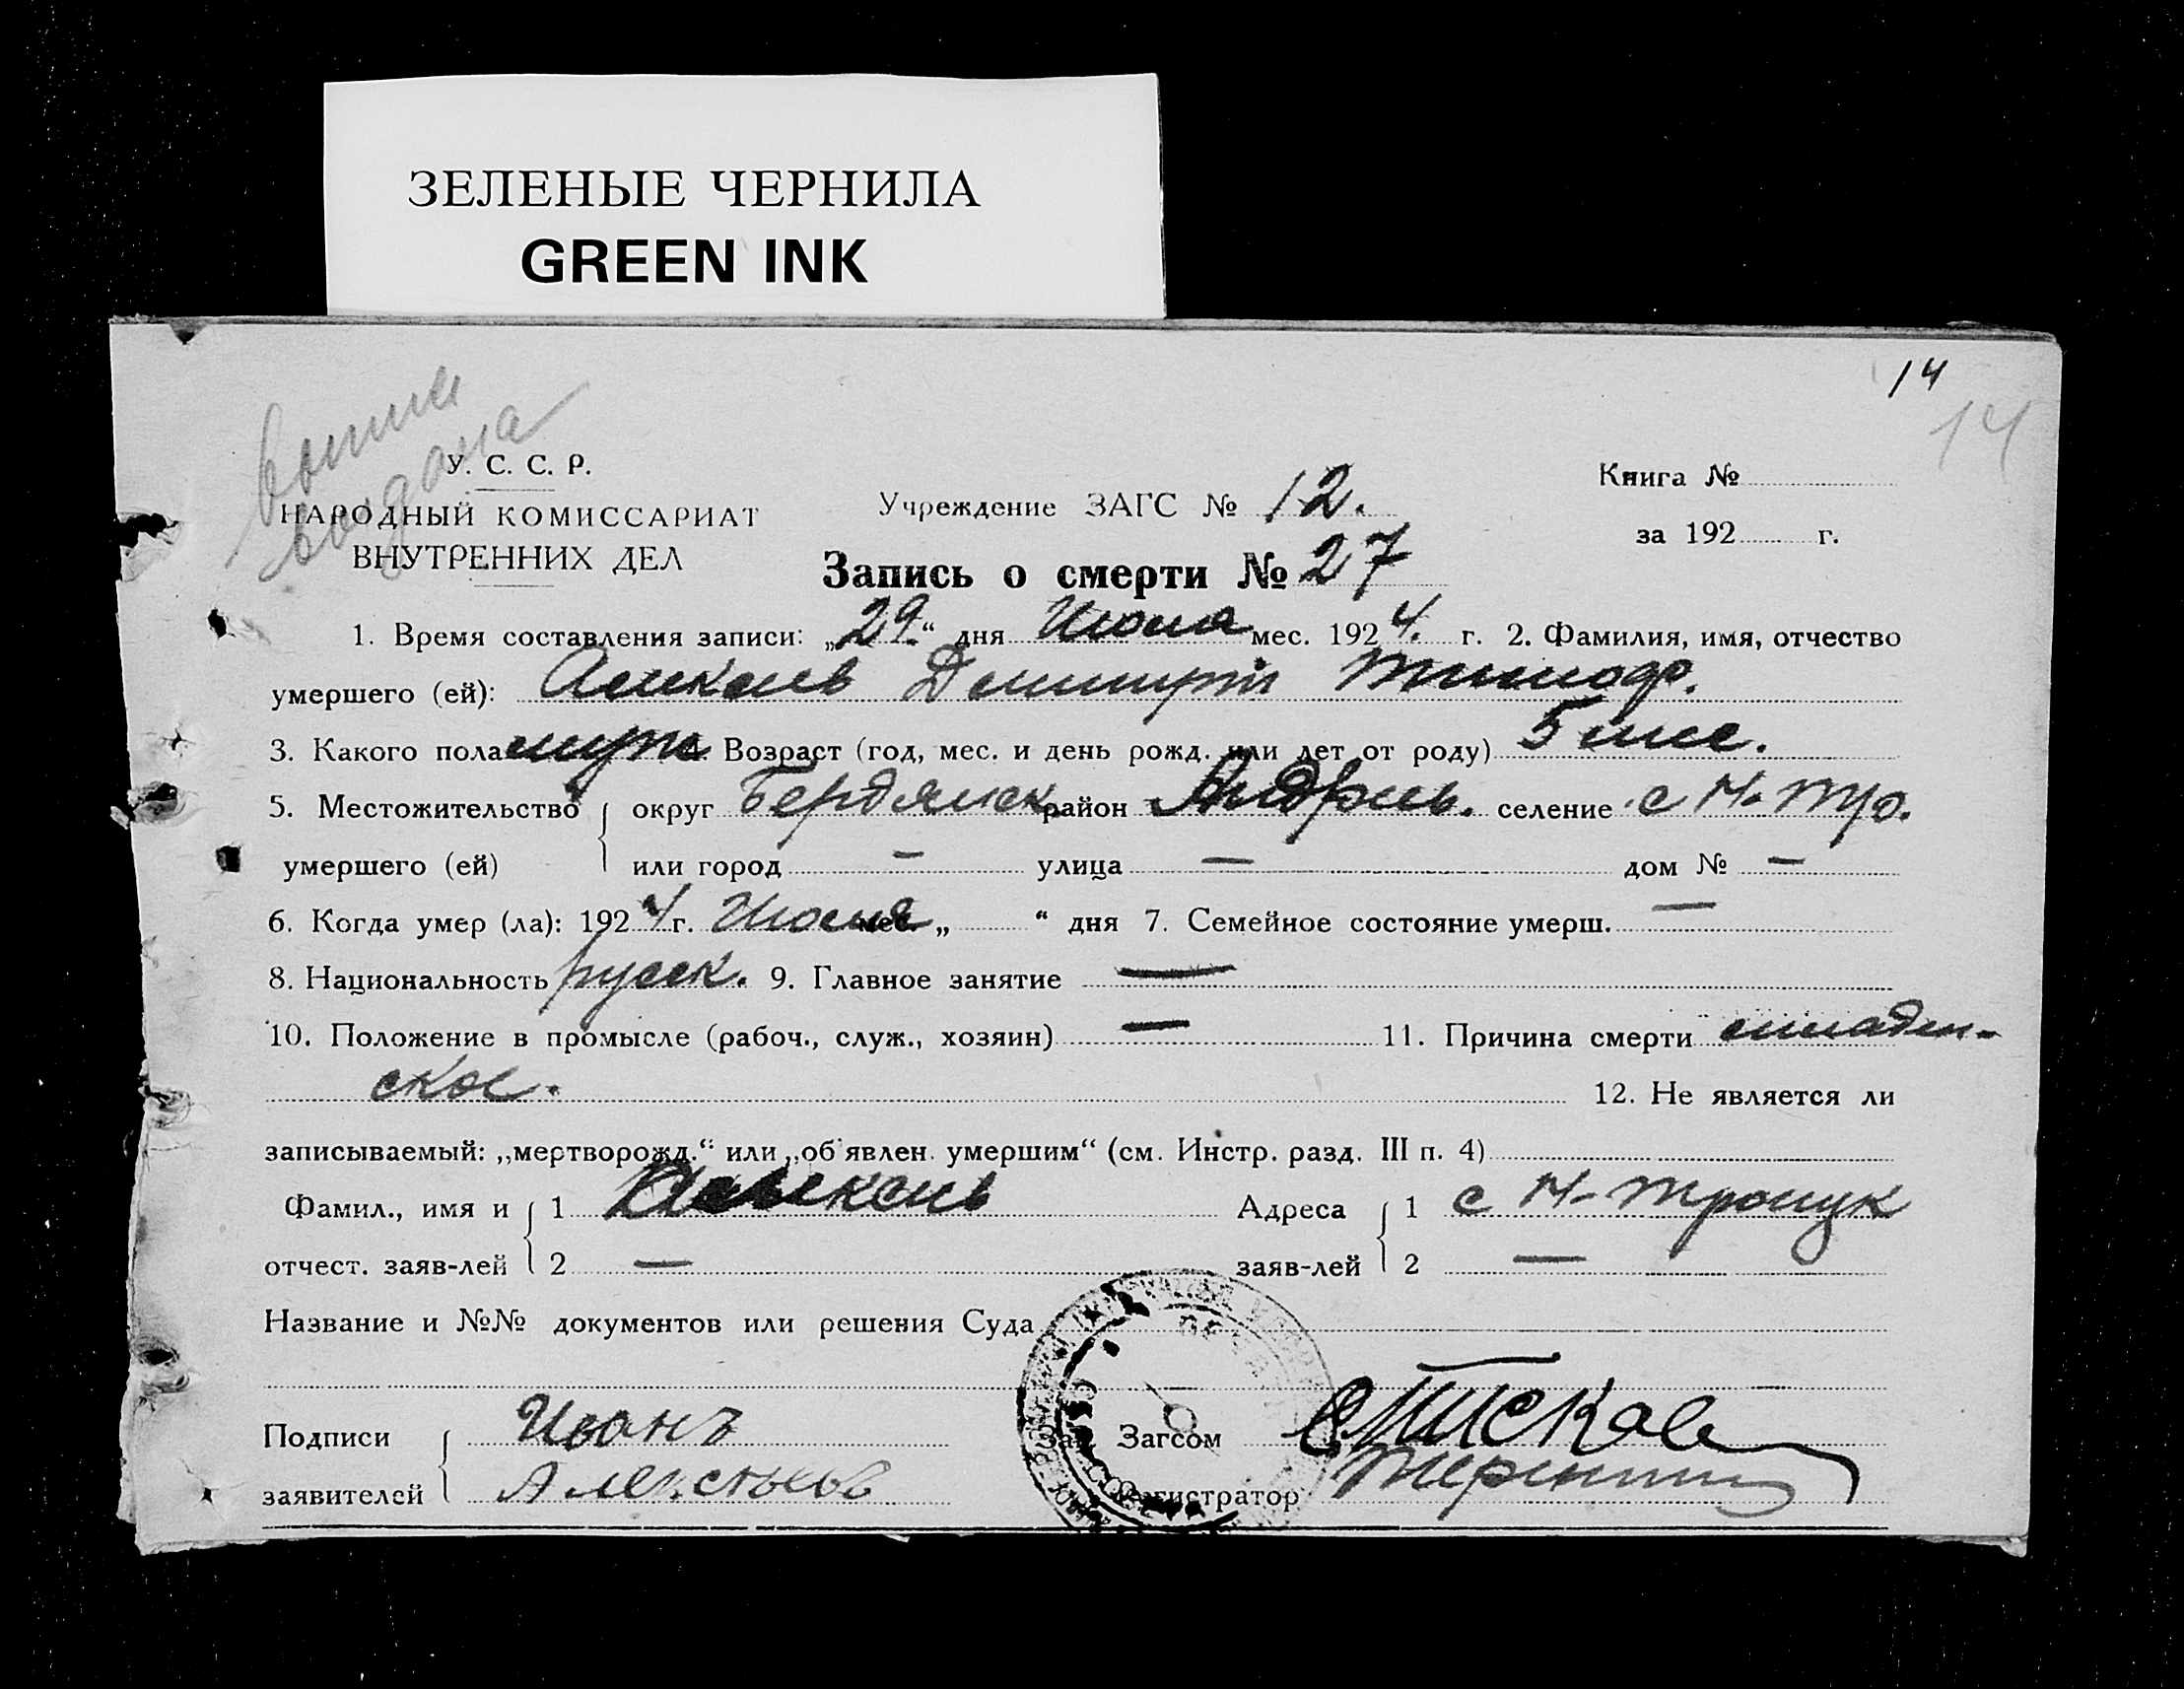 ЗЕЛЕНЫЕ ЧЕРНИЛА
GREEN INK
14
14
У. С. С. Р.
Книга №
НАРОДНЫЙ КОМИССАРИАТ
Учреждение ЗАГС № 12.
ВНУТРЕННИХ ДЕЛ
за 192 г.
Запись о смерти № 27
1. Время составления записи: „29.“ дня Июня мес. 1924. г. 2. Фамилия, имя, отчество
умершего (ей): Дмитрий Тимоф.
3. Какого пола муж 4. Возраст (год, мес. и день рожд. или лет от роду) 5 мес.
5. Местожительство округ Бердянск район Андрив. селение с Н-Тро.
умершего (ей) или город — улица — дом № —
6. Когда умер (ла): 1924 г. Июня мес. „ “ дня 7. Семейное состояние умерш. —
8. Национальность русск. 9. Главное занятие —
10. Положение в промысле (рабоч., служ., хозяин) — 11. Причина смерти младен-
ское. 12. Не является ли
записываемый: „мертворожд.“ или „об'явлен. умершим“ (см. Инстр. разд. III п. 4)
Фамил., имя и 1 Адреса 1 с Н-Троицк
отчест. заяв-лей 2 — заяв-лей 2 —
Название и №№ документов или решения Суда
Подписи Иванъ Зав. Загсом
заявителей Регистратор